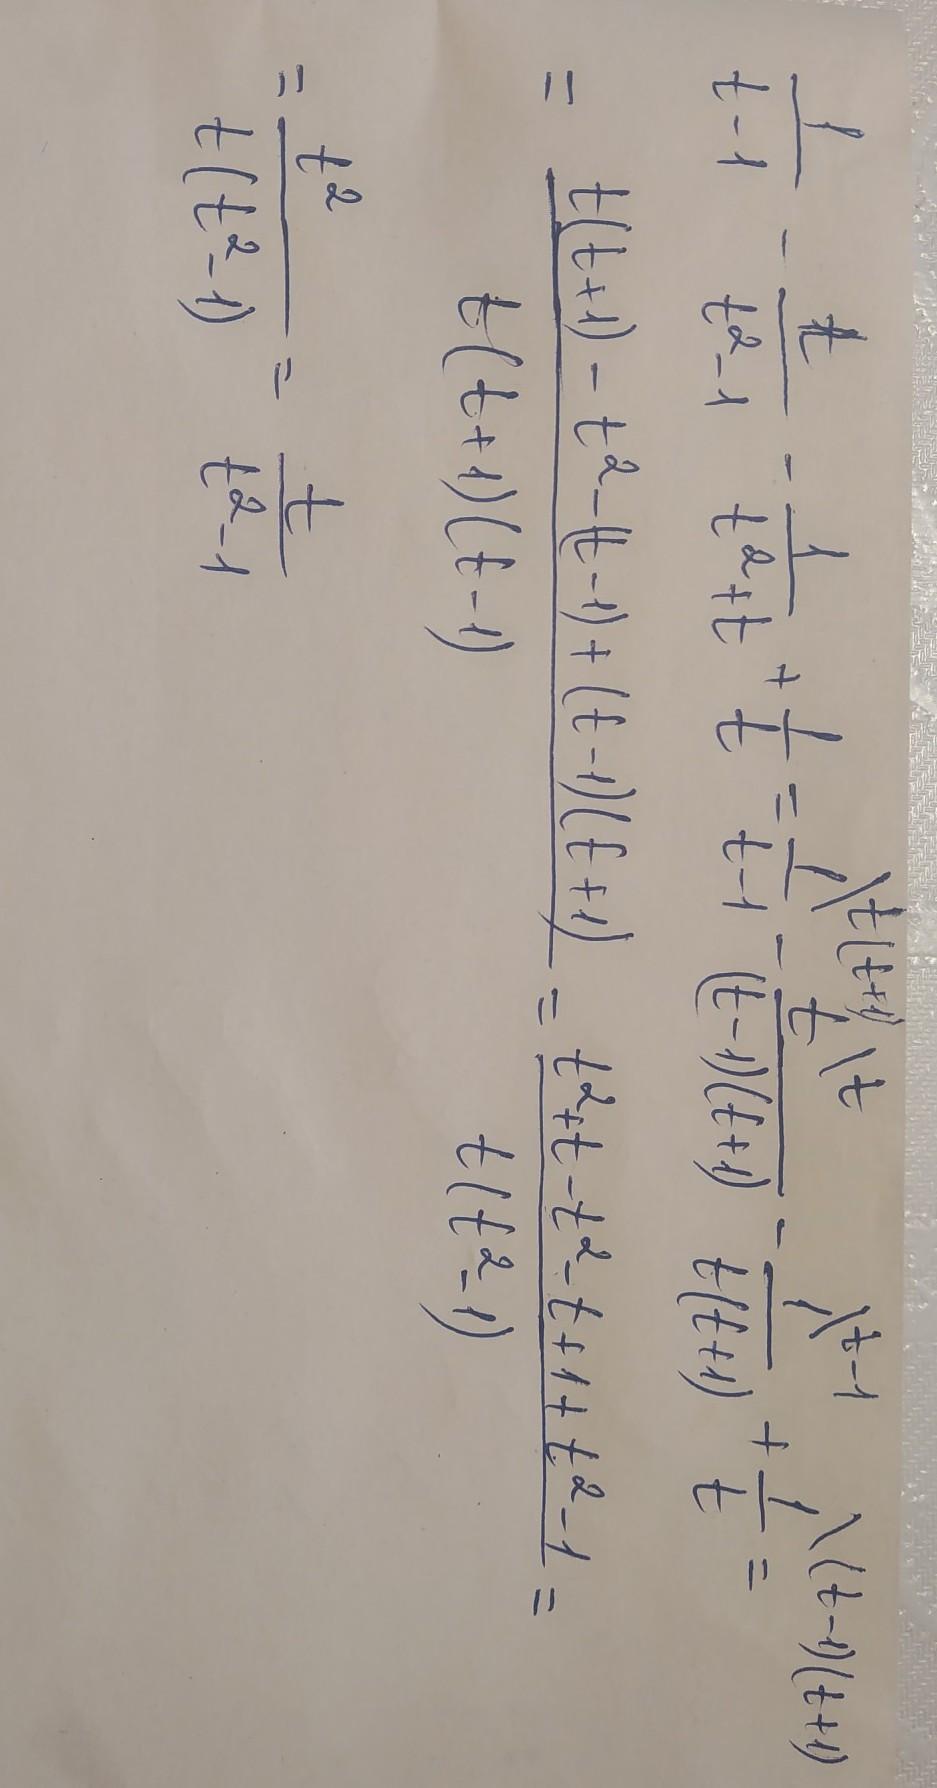 1/(t-1) - t/(t²-1) - 1/(t²+t) + 1/t = 1\t(t+1)/(t-1) - t\t/((t-1)(t+1)) - 1\t-1/(t(t+1)) + 1\(t-1)(t+1)/t =
= (t(t+1) - t² - (t-1) + (t-1)(t+1))/(t(t+1)(t-1)) = (t²+t-t²-t+1+t²-1)/(t(t²-1)) =
= t²/(t(t²-1)) = t/(t²-1)